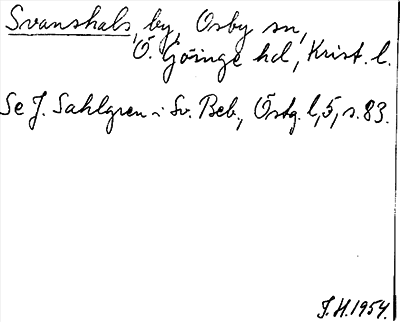 Svanshals, by, Osby sn,
Ö. Göinge hd, Krist. l.
Se J. Sahlgren i Sv. Beb., Östg. l, 5, s. 83.
J.H. 1954.